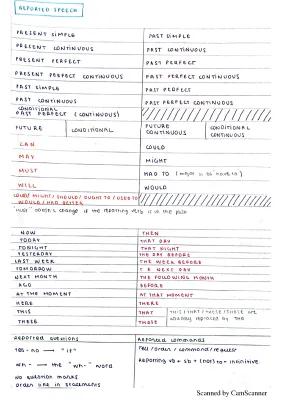 REPORTED SPEECH
PRESENT SIMPLE PAST SIMPLE
PRESENT CONTINUOUS PAST CONTINUOUS
PRESENT PERFECT PAST PERFECT
PRESENT PERFECT CONTINUOUS PAST PERFECT CONTINUOUS
PAST SIMPLE PAST PERFECT
PAST CONTINUOUS PAST PERFECT CONTINUOUS
CONDITIONAL
PAST PERFECT (CONTINUOUS)
FUTURE CONDITIONAL FUTURE CONTINUOUS CONDITIONAL CONTINUOUS
CAN COULD
MAY MIGHT
MUST HAD TO
WILL WOULD
COULD/ MIGHT / SHOULD / OUGHT TO / USED TO
WOULD / HAD BETTER
doesn't change if the reporting verb is in the past
NOW THEN
TODAY THAT DAY
TONIGHT THAT NIGHT
YESTERDAY THE DAY BEFORE
LAST WEEK THE WEEK BEFORE
TOMORROW NEXT DAY
NEXT MONTH THE FOLLOWING MONTH
AGO BEFORE
AT THE MOMENT AT THAT MOMENT
HERE THERE
THIS THAT this/that/these/those are
THESE THOSE usually replaced by the
Reported questions Reported commands
Yes-no → "if" Tell/order/command/request
wh- → the "wh-" word Reporting vb + sb + (not) to + infinitive
No question marks
Order like in statements
Scanned by CamScanner